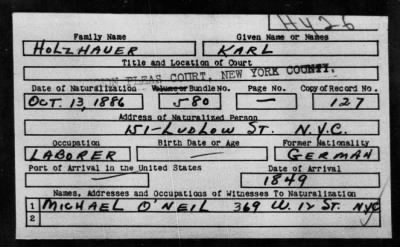 H426
Family Name Given Name or Names
HOLZHAUER KARL
Title and Location of Court
COMMON PLEAS COURT, NEW YORK COUNTY.
Date of Naturalization Volume or Bundle No. Page No. Copy of Record No.
OCT. 13, 1886 580 — 127
Address of Naturalized Person
151-LUDLOW ST. N.Y.C.
Occupation Birth Date or Age Former Nationality
LABORER — GERMAN
Port of Arrival in the United States Date of Arrival
— 1849
Names, Addresses and Occupations of Witnesses To Naturalization
1 MICHAEL O'NEIL 369 W. 12 ST. NYC
2